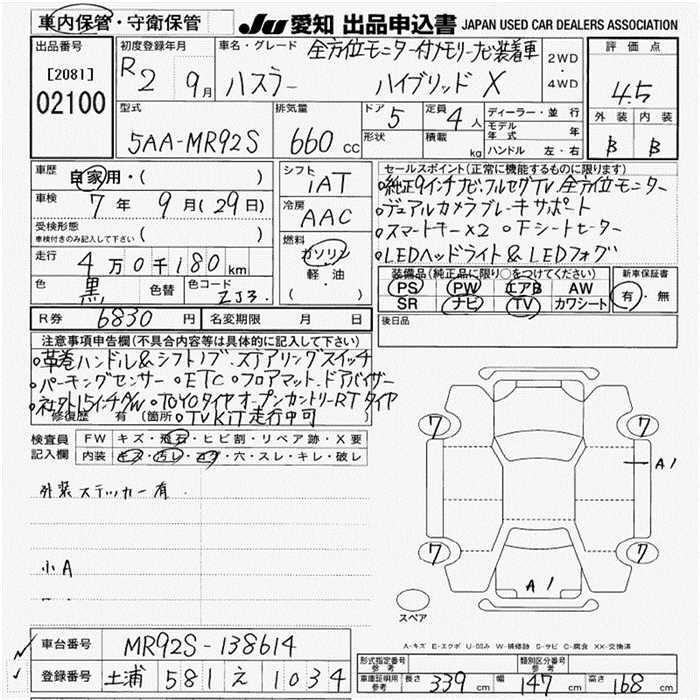 車内保管・守衛保管 JU 愛知 出品申込書 JAPAN USED CAR DEALERS ASSOCIATION
出品番号 [2081] 02100
初度登録年月 R2 9月
車名・グレード 全方位モニター付メモリーナビ装着車
ハスラー ハイブリッド X
2WD・4WD
評価点 4.5
外装 内装
B B
型式 5AA-MR92S
排気量 660 cc
ドア 5
形状
定員 4人
積載 kg
ディーラー・並行
モデル年式 年
ハンドル 左・右
車歴 自家用・( )
車検 7年 9月(29日)
受検形態
車検付きのみ記入して下さい ( )
走行 4万0千180km
色 黒 色替 色コード ZJ3
シフト iAT
冷房 AAC
燃料 ガソリン
軽油
( )
セールスポイント(正常に機能するものに限ります)
•純正9インチナビフルセグTV 全方位モニター
•デュアルカメラブレーキサポート
•スマートキー×2 •Fシートヒーター
•LEDヘッドライト&LEDフォグ
装備品(純正品に限り○をつけてください)
PS PW エアB AW
SR ナビ TV カワシート
新車保証書
有・無
R券 6830円 名変期限 月 日
後日品
注意事項申告欄(不具合内容等は具体的に記入して下さい)
•革巻ハンドル&シフトノブ.ステアリングスイッチ
•パーキングセンサー •ETC •フロアマット.ドアバイザー
•社外15インチA/W •TOYOタイヤオープンカントリーRTタイヤ
修復歴 有(箇所 •TVKIT走行中可 )
検査員記入欄
FW キズ・飛石・ヒビ割・リペア跡・X要
内装 キズ・汚レ・コゲ・穴・スレ・キレ・破レ
外装ステッカー有
小A
7 7
A1
7 7
A1
スペア
A-キズ E-エクボ U-凹み W-補修跡 S-サビ C-腐食 XX-交換済
車台番号 MR92S-138614
登録番号 土浦 581 え 1034
形式指定番号 参考
類別区分番号 参考
車庫証明用 参考 長さ 339 cm 幅 147 cm 高さ 168 cm